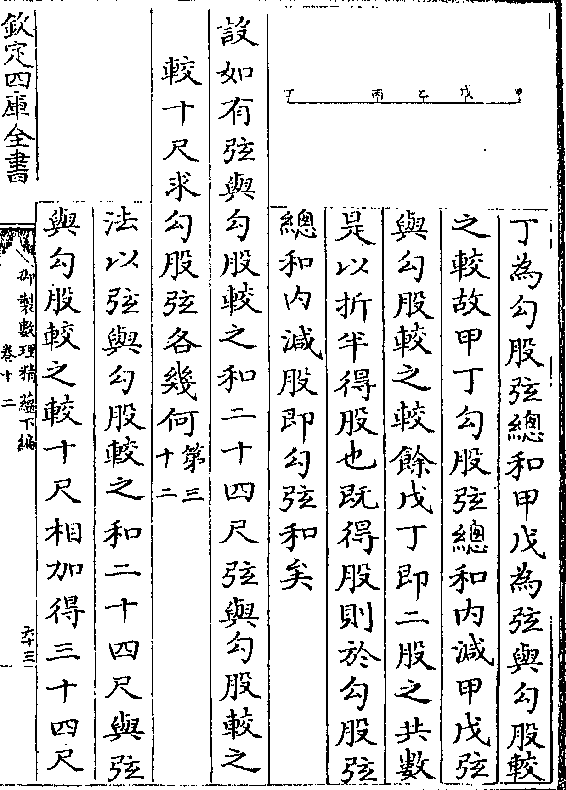 丁 丙 乙 戊 甲
丁為勾股弦總和甲戊為弦與勾股較
之較故甲丁勾股弦總和內減甲戊弦
與勾股較之較餘戊丁即二股之共數
是以折半得股也既得股則於勾股弦
總和內減股即勾弦和矣
設如有弦與勾股較之和二十四尺弦與勾股較之
較十尺求勾股弦各幾何第三十二
法以弦與勾股較之和二十四尺與弦
與勾股較之較十尺相加得三十四尺
欽定四庫全書
御製數理精蘊下編
卷十二
六十三